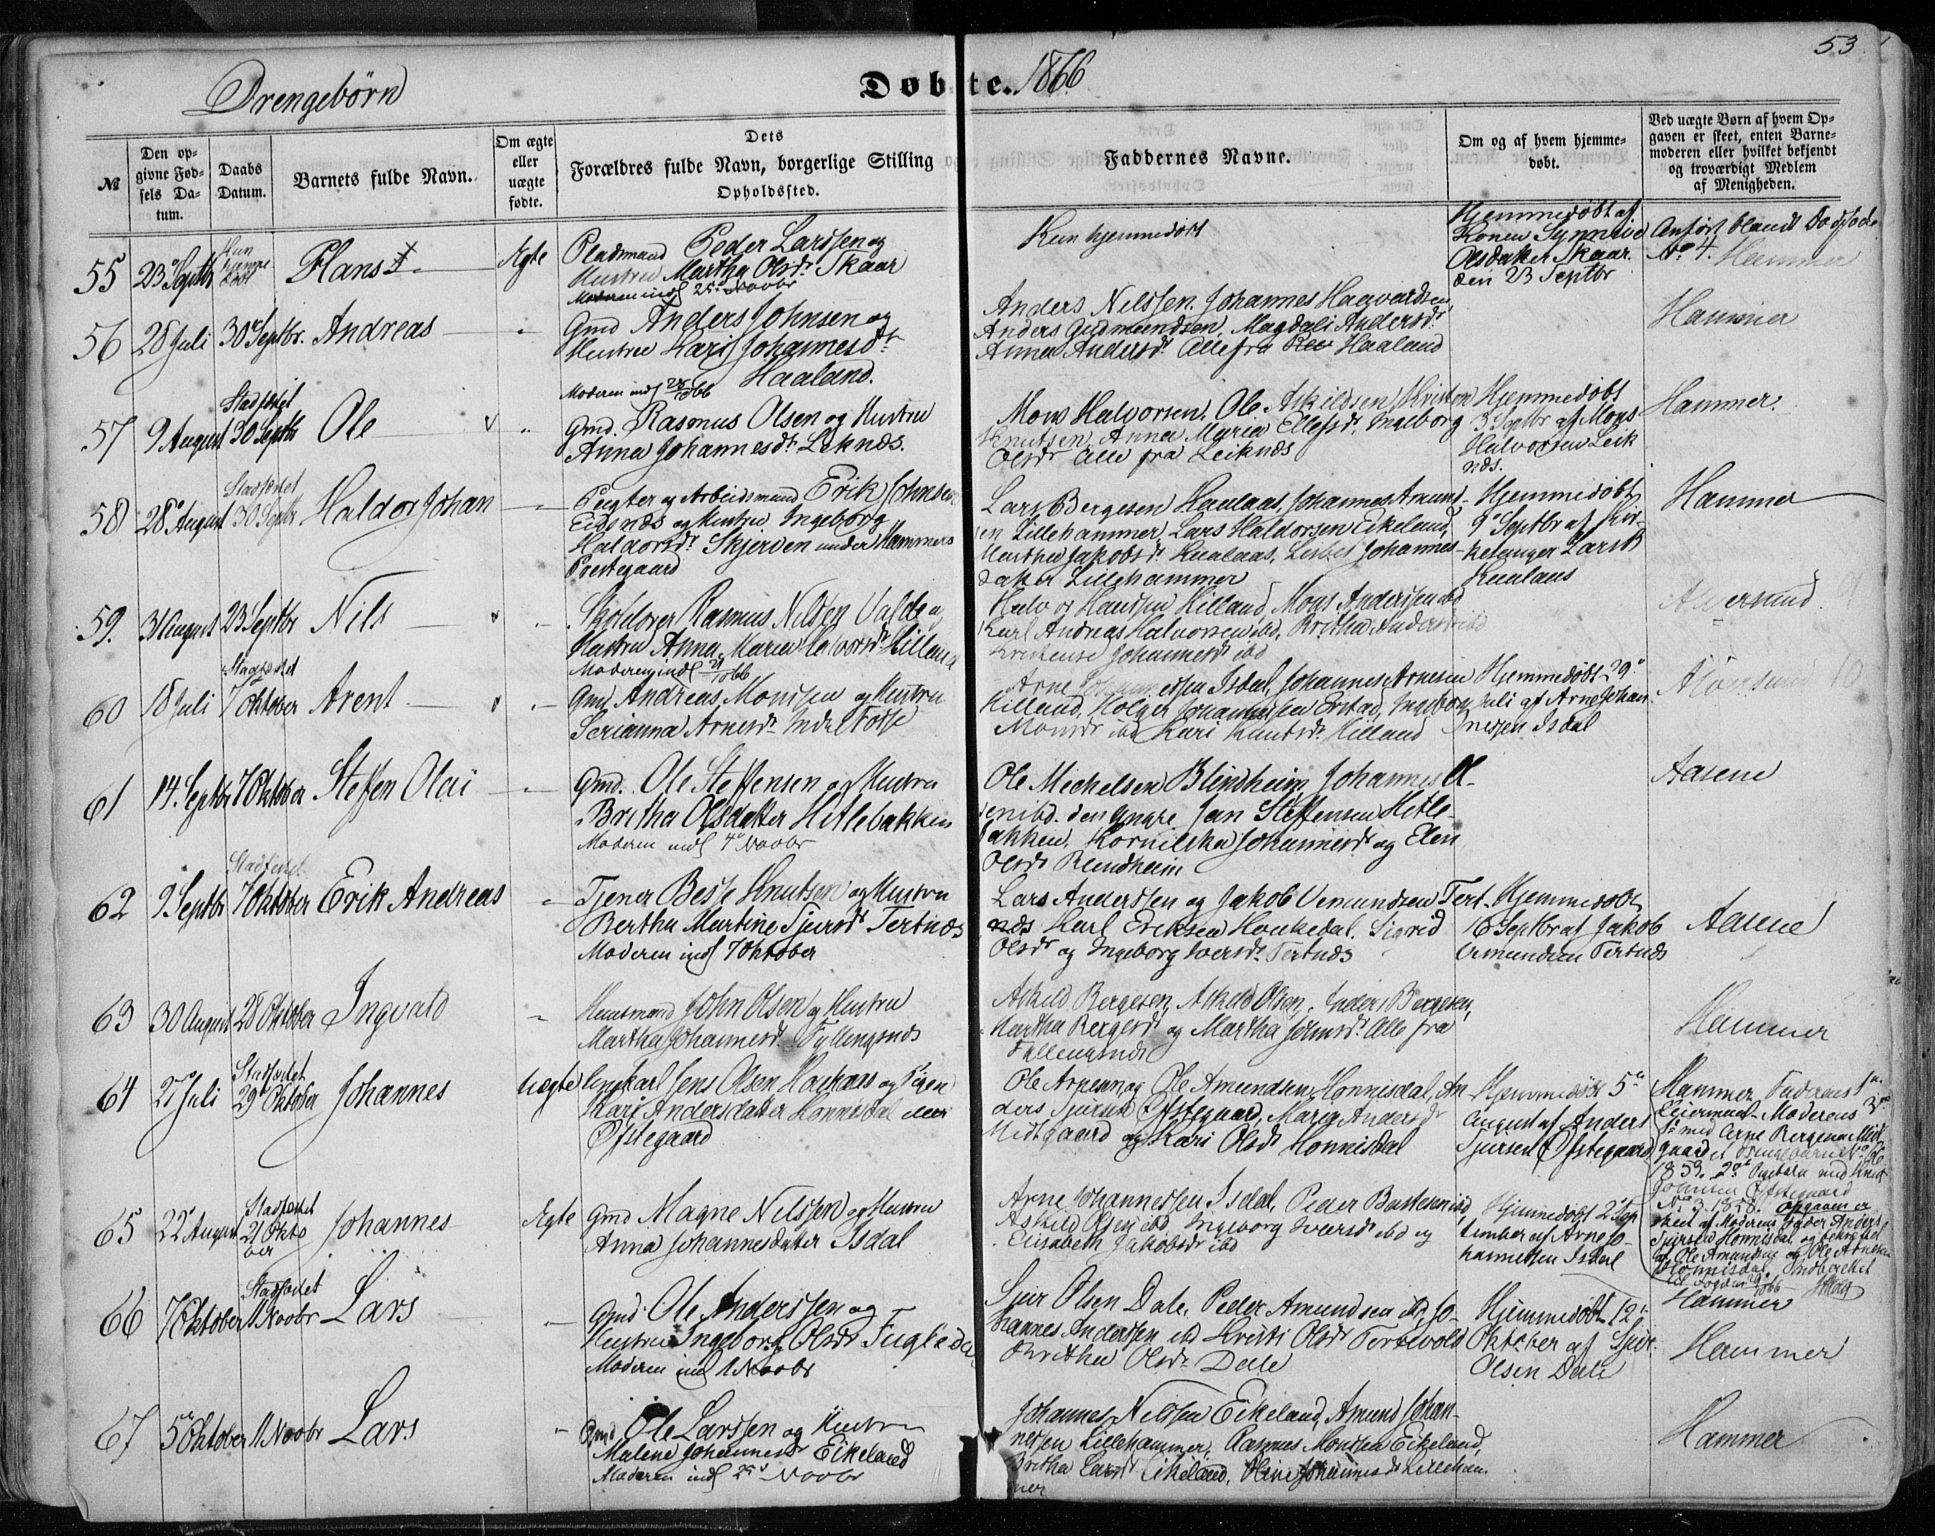 53
Drengebørn
Døbte. 1866
№
Den opgivne Fødsels Datum.
Daabs Datum.
Barnets fulde Navn.
Om ægte eller uægte fødte.
Dets Forældres fulde Navn, borgerlige Stilling
Opholdssted.
Faddernes Navne.
Om og af hvem hjemmedøbt.
Ved uægte Børn af hvem Opgaven er skeet, enten Barnemoderen eller hvilket bekjendt og troværdigt Medlem af Menigheden.
55 23 Septbr Kun hjemmedøbt Hans Ægte
Pladsmand Peder Larssen og
Hustru Martha Olsdr Skaar
Moderen indl 25 Novbr
Kun hjemmedøbt
Hjemmedøbt af
Konen Synneve
Olsdatter Skaar
den 23 Septbr
Anført blandt Dødfødte
No 4. Hammer
56 28 Juli 30 Septbr. Andreas "
Gmd Anders Johnsen og
Hustru Kari Johannesdr
Haaland.
Anders Nilssen, Johannes Hagvardsen,
Anders Gudmundsen, Magdali Andersdr
Anna Andersdr Alle fra Haaland
Hammer
57 9 August Stadfæstet 30 Septbr Ole "
Moderen indl 1866
Gmd. Rasmus Olsen og Hustru
Anna Johannesdr Leknæs.
Mons Halvorsen, Ole Askildsen,
Knutsen, Anna Maria Ellefsdr, Ingeborg
Olsdr Alle fra Leiknæs
Hjemmedøbt
3 Septbr af Mons
Halvorsen Leik
næs.
Hammer.
58 28 August Stadfæstet 30 Septbr Haldor Johan "
Pagter og Arbeidsmand Erik Johnsen
Eidsnæs og Hustru Ingeborg
Haldorsdr Skjerden under Hammers
Prestegaard
Lars Bergesen Haalaas, Johannes Amund-
sen Lillehammer, Lars Haldorsen Eikeland,
Martha Jakobsdr Kualaas, Lisbet Johannes-
datter Lillehammer
Hjemmedøbt
9 Septbr af Kir-
kesanger Lars B
Kualaas
Hammer
59. 31 August 23 Septbr Nils "
Skoelærer Rasmus Nilsen Valde og
Hustru Anna Maria Halvorsdr Killand
Halvor Hansen Killand, Mons Anderssen ibd
Karl Andreas Halvorsen ibd, Britha Andersdr ibd
Kristense Johannesdr ibd
Alversund 9
60 18 Juli Stadfæstet 7 Oktober Arent "
Moderen indl 1866
Gmd. Andreas Monssen og Hustru
Serianna Arnesdr Indre Fosse
Arne Isdal, Johannes Arnesen
Killand, Holger Johannessen Erstad, Ingeborg
Monsdr ibd Kari Knutsdr Killand
Hjemmedøbt 29
Juli af Arne Johan-
nessen Isdal
Alversund 10
61 14 Septbr 7 Oktober Steffen Olai "
Gmd. Ole Steffensen og Hustru
Britha Olsdatter Hitlebakken
Moderen indl 4 Novbr
Ole Michelsen Blindheim, Johannes Ol-
sen ibd. den Yngre, Jan Steffensen Hitle-
bakken, Kornilska Johannesdr og Elen
Olsdr Blindheim
Aasene
62 9 Septbr Stadfæstet 7 Oktober Erik Andreas "
Tjener Besse Knutsen og Hustru
Bertha Martine Sjursdr Tertnæs
Moderen indl 7 Oktober
Lars Anderssen og Jakob Vemundsen Tert-
næs Karl Eriksen Haukedal, Sigrid
Olsdr og Ingeborg Iversdr Tertnæs
Hjemmedøbt
16 Septbr af Jakob
Vemundsen Tertnæs
Aasene
63 30 August 28 Oktober Ingvald "
Huusmand John Olsen og Hustru
Martha Johannesdr Fyllingsnæs
Askild Bergesen, Askild Olsen, Anders Bergesen,
Martha Bergesdr og Martha Johnsdr. Alle fra
Fyllingsnæs
Hammer
64 27 Juli Stadfæstet 29 Oktober Johannes Uægte
Ungkarl Jens Olsen Haukaas og Pigen
Kari Andersdatter Honnisdal eller
Øfstegaard
Ole Arnesen og Ole Amundsen Honnisdal, An-
ders Sjursen Øfstegaard, Maria Andersdr
Midtgaard og Kari Olsdr Honnisdal
Hjemmedøbt 5
August af Anders
Sjursen Øfstegaard
Hammer Faderens 1
Leiermaal Moderens 3
1 med Arne Bergesen Midt-
gaard
1853. 2 med Knut
Øfstegaard
No 3 1858. Opgaven er
skeet af Moderens Fader Anders
Sjursen Honnisdal og bekræftet
af Ole Amundsen og Ole Arnesen
Honnisdal. Indberettet
1866
65 22 August Stadfæstet 21 Oktober Johannes Ægte
Gmd Magne Nilssen og Hustru
Anna Johannesdatter Isdal
Arne Johannessen Isdal, Peder Bastesen ibd,
Askild Olsen ibd, Ingeborg Iversdr ibd og
Elisabeth Jakobsdr ibd
Hjemmedøbt 2 Sep
tember af Arne Jo-
hannessen Isdal
Hammer
66 7 Oktober Stadfæstet 1 Novbr Lars "
Gmd Ole Anderssen og
Hustru Ingeborg Olsdr Fugledal
Moderen indl 1 Novbr
Sjur Olsen Dale, Peder Amundsen ibd, Jo-
hannes Anderssen ibd Kristi Olsdr Torbevold
Britha Olsdr Dale
Hjemmedøbt 12
Oktober af Sjur
Olsen Dale
Hammer
67 5 Oktober 1 Novbr Lars "
Gmd Ole Larssen og Hustru
Malene Johannesdr Eikeland
Moderen indl 25 Novbr
Johannes Nilssen Eikeland, Amund Johan-
nessen Lillehammer, Rasmus Monssen Eikeland,
Britha Larsdr Eikeland, Oline Johannesdr Lilleham
mer
Hammer